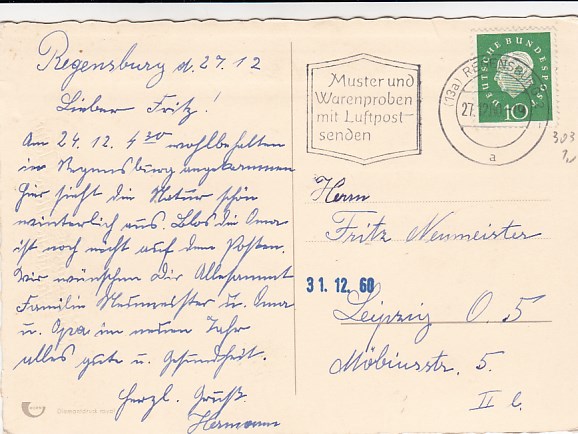 Regensburg d. 27. 12
Lieber Fritz!
Am 24. 12. 4 30 wohlbehalten
in Regensburg angekommen
hier sieht die Natur schön
winterlich aus. Blos die Oma
ist noch nicht auf dem Posten.
Wir wünschen Dir Allesammt
Familie Neumeister u. Oma
u. Opa im neuen Jahr
alles gute u. Gesundheit.
Herzl. Gruß.
Hermann
Muster und
Warenproben
mit Luftpost-
senden
(13a) REGENSBURG
27.12.60
a
DEUTSCHE BUNDESPOST
10
303
Herrn
Fritz Neumeister
31. 12. 60
Leipzig O. 5
Möbiusstr. 5.
II l.